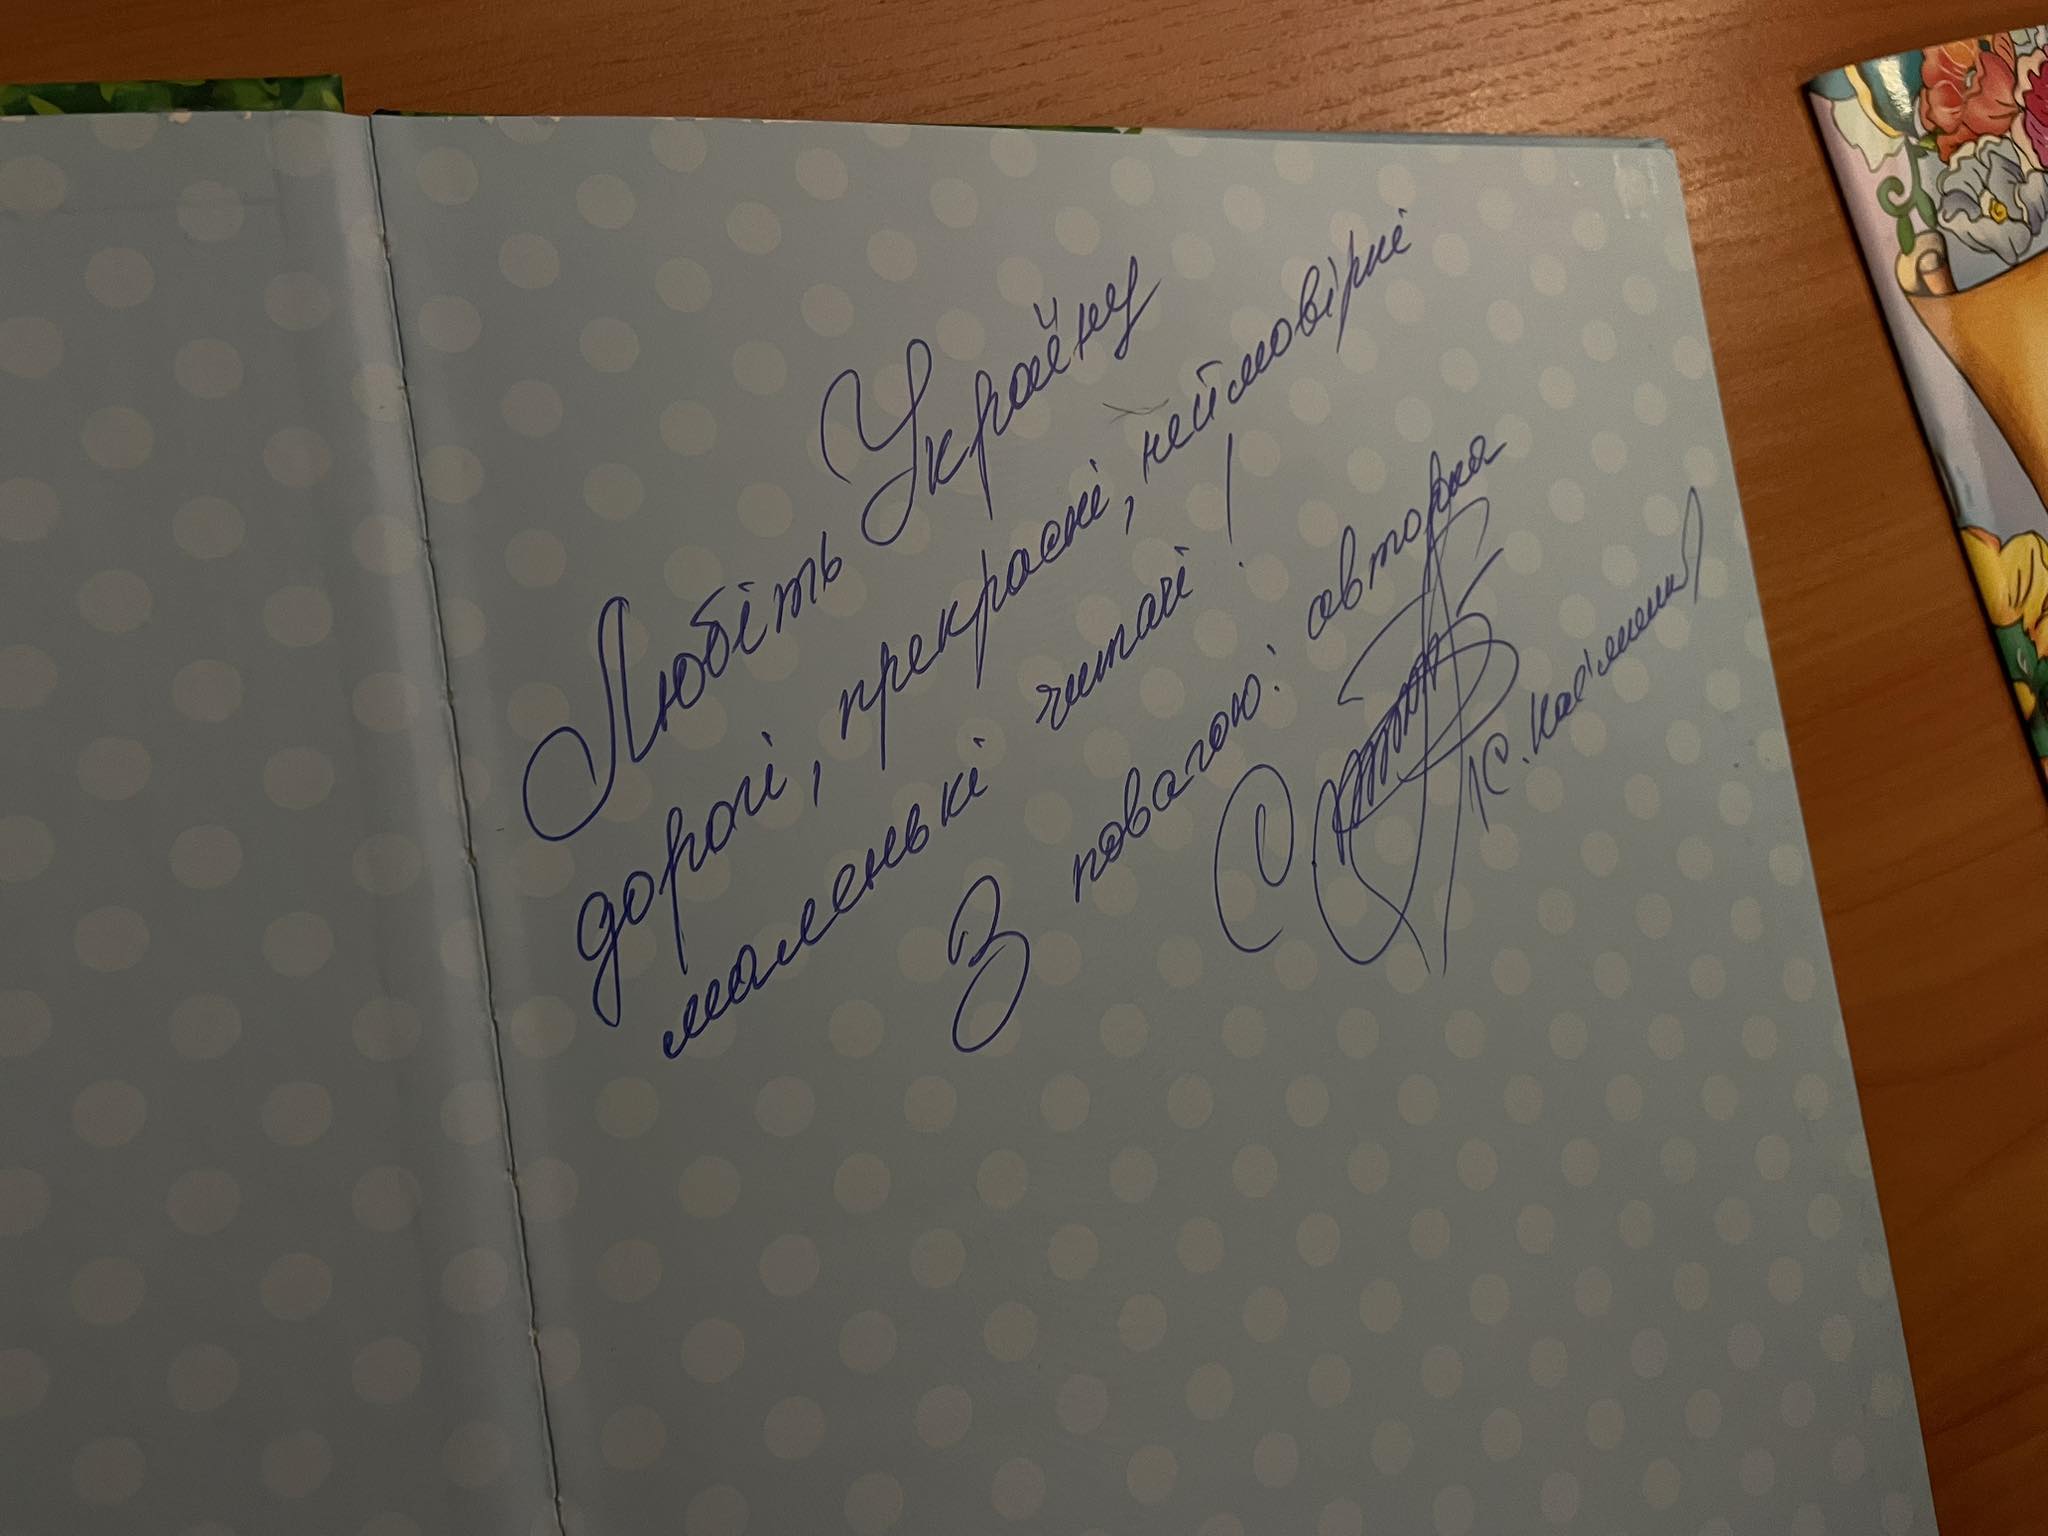 Любіть Україну
дорогі, прекрасні, неймовірні
маленькі читачі!
З повагою: авторка